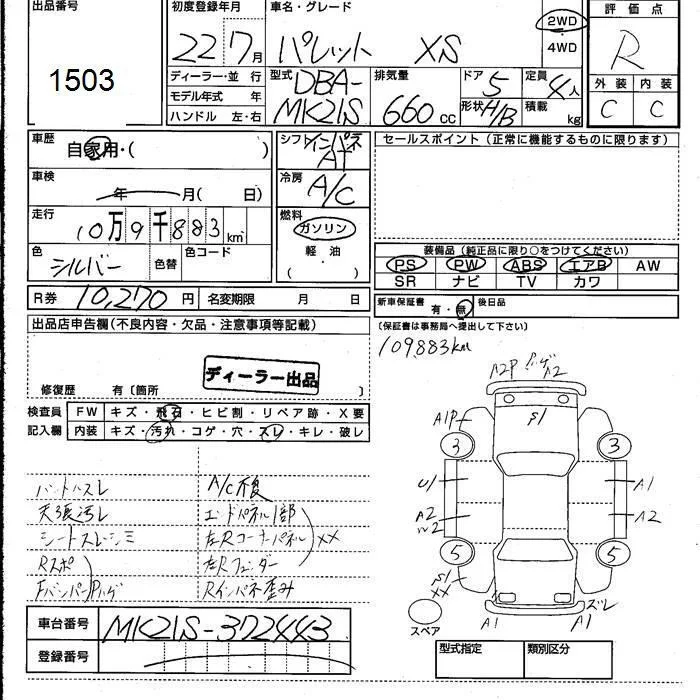 出品番号 初度登録年月 車名・グレード 2WD 評価点
1503 22 7月 パレット XS ・ 4WD R
ディーラー・並行 型式 DBA- 排気量 ドア 5 定員 4人 外装 内装
モデル年式 年 MK21S 660cc 形状 H/B 積載 kg C C
ハンドル 左・右
車歴 自家用・( ) シフト インパネ AT セールスポイント (正常に機能するものに限ります)
車検 年 月( 日) 冷房 A/C
走行 10万9千883km 燃料 ガソリン
色 シルバー 色替 色コード 軽油 ( ・ )
装備品 (純正品に限り○をつけてください)
PS PW ABS エアB AW
SR ナビ TV カワ
R券 10,270円 名変期限 月 日 新車保証書 有・無 後日品
出品店申告欄(不良内容・欠品・注意事項等記載) (保証書は事務局へ提出して下さい)
109883km
ディーラー出品
修復歴 有〔箇所 〕
検査員 FW キズ・飛石・ヒビ割・リペア跡・X要
記入欄 内装 キズ・汚れ・コゲ・穴・スレ・キレ・破レ
A2P ハゲ A2
A1P S1
3 3
U1 A1
A2 A2
5 5
S1
XX
スペア A1 A1 ズレ
A/C不良
天張汚レ エンドパネル1部
シートスレシミ 左Rコーナーパネル XX
Rスポ 左Rフェンダー
FバンパーPハゲ Rインパネ歪み
車台番号 MK21S-372443
登録番号
型式指定 類別区分